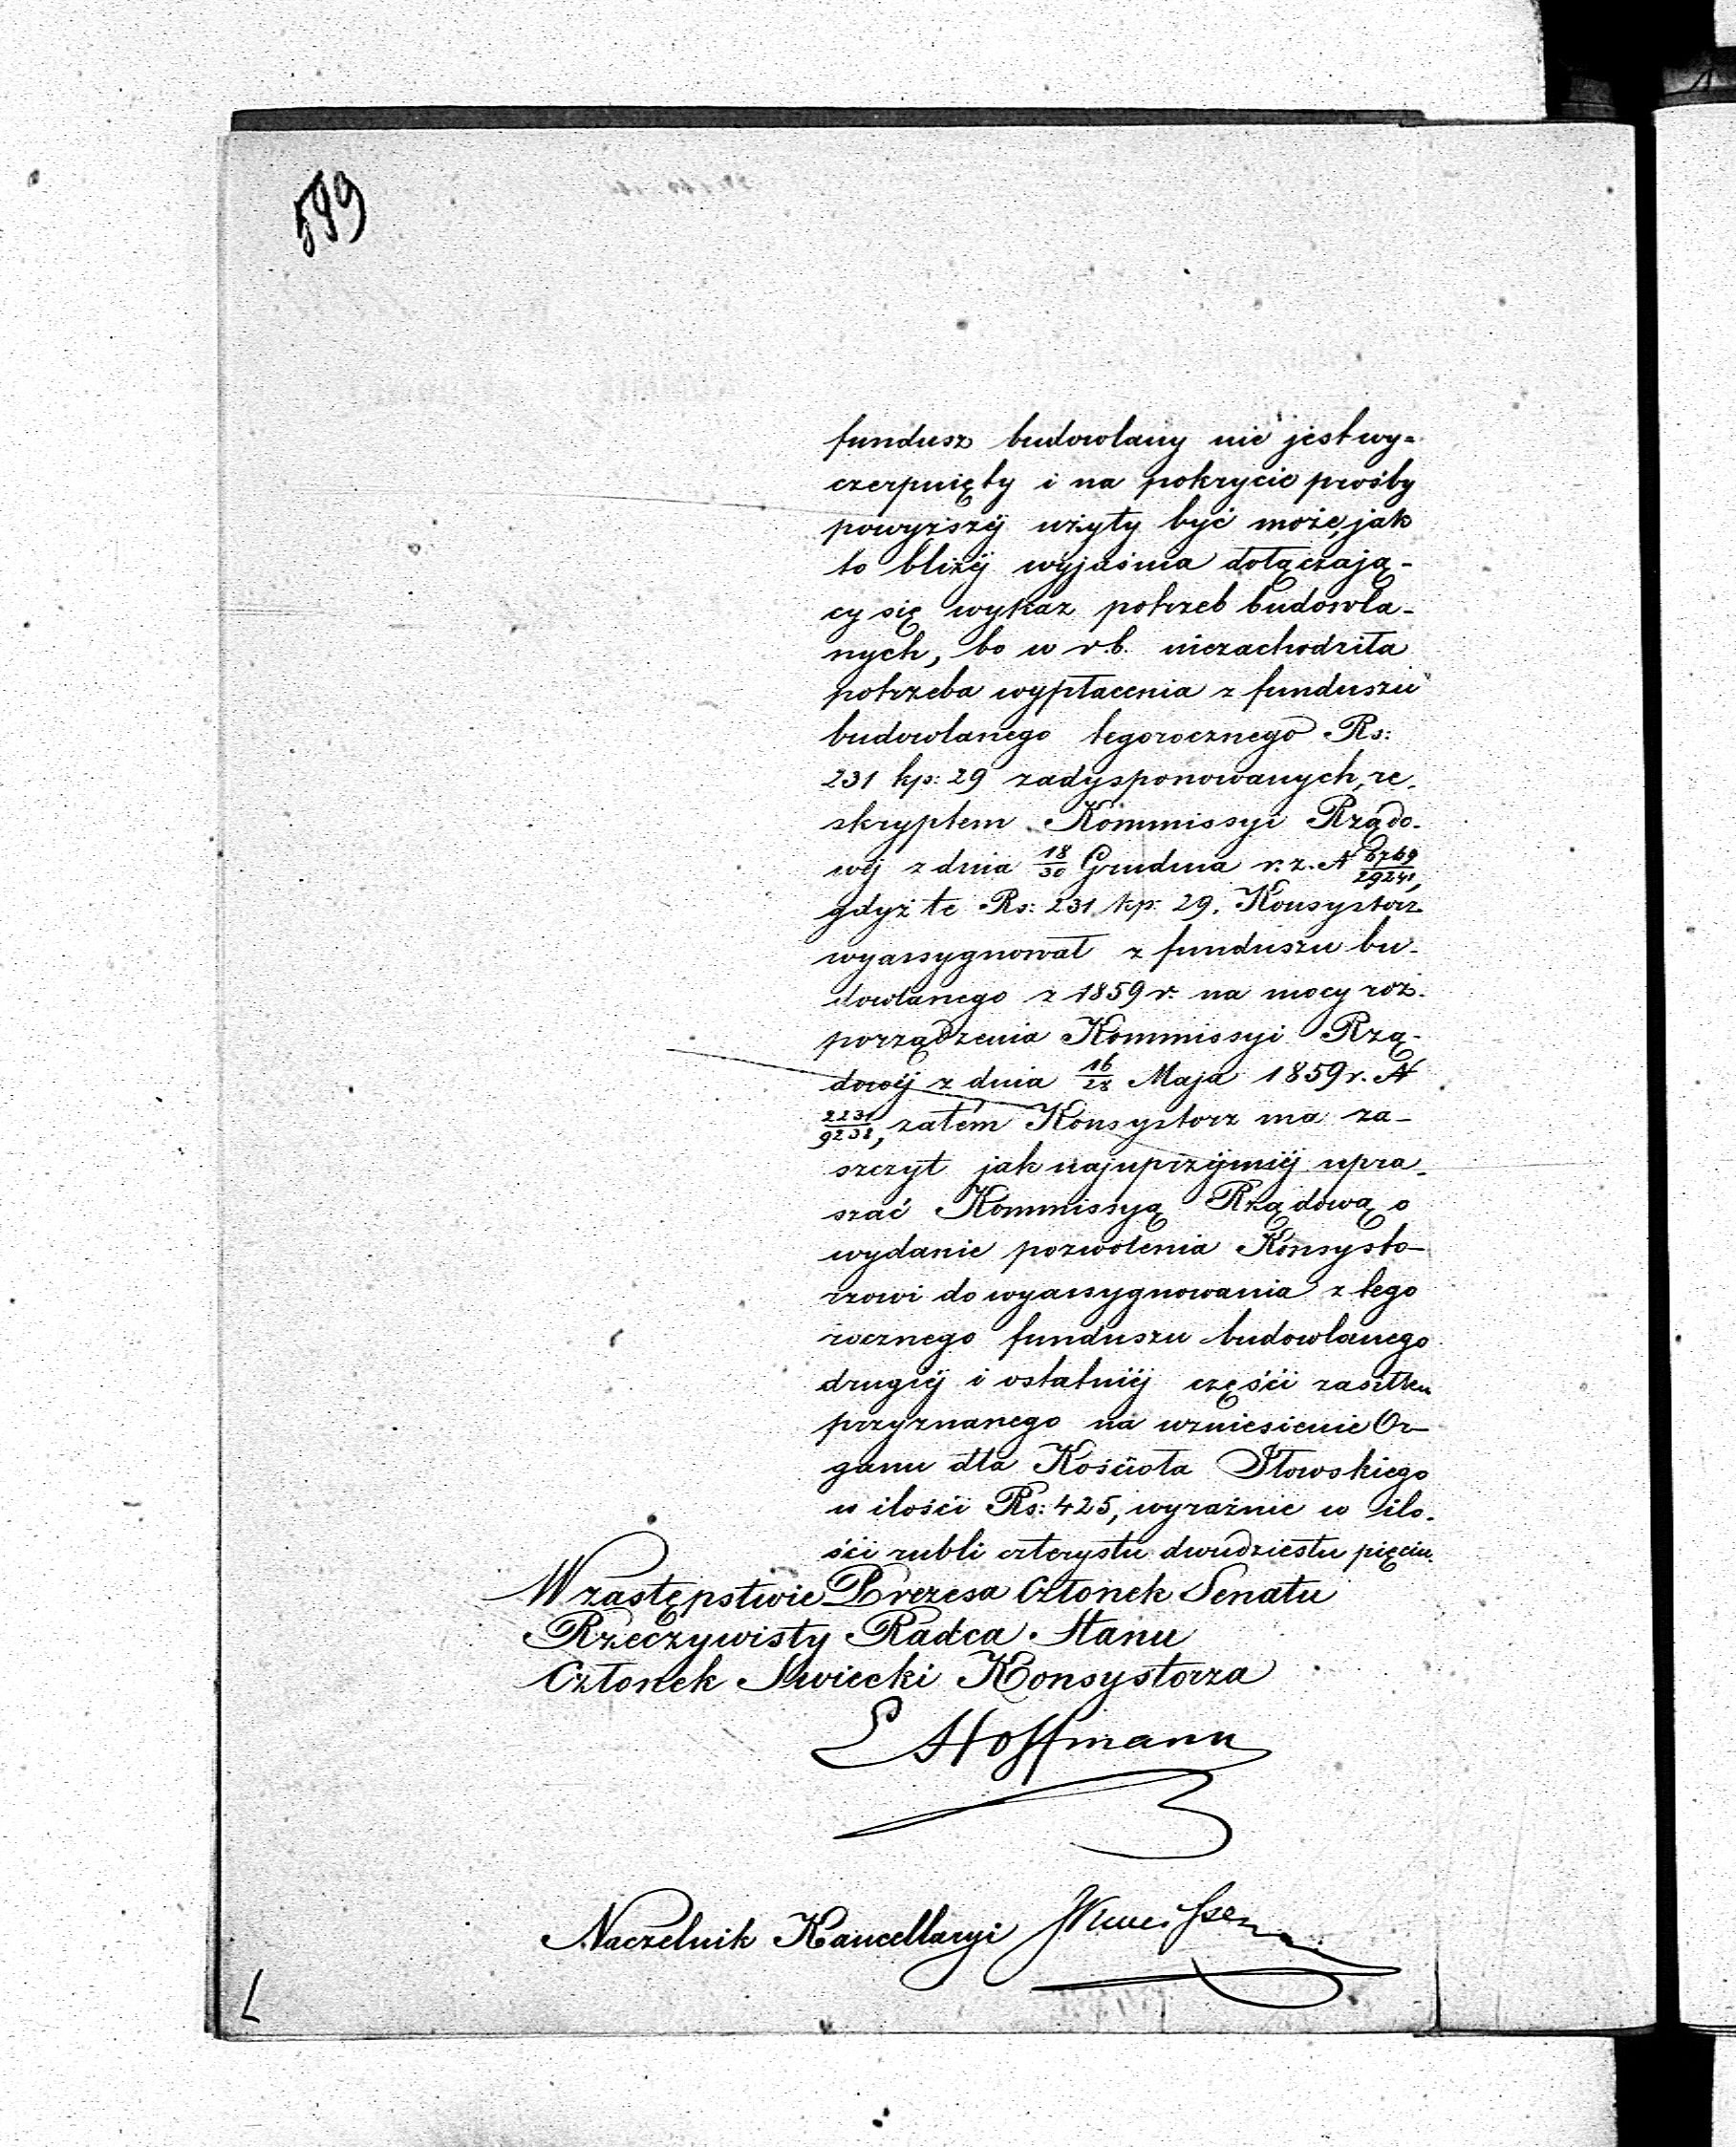 599
fundusz budowlany nie jest wy=
czerpnięty i na pokrycie prośby
powyższéj użyty być może, jak
to bliżéj wyjaśnia dołączają-
cy się wykaz potrzeb budowla-
nych, bo w r.b. niezachodziła
potrzeba wypłacenia z funduszu
budowlanego tegorocznego Rs:
231 kp: 29 zadysponowanych, re-
skryptem Kommissyi Rządo-
wéj z dnia 18/30 Grudnia r. z. N 6769/29241,
gdyż te Rs: 231 kp: 29. Konsystorz
wyassygnował z funduszu bu-
dowlanego z 1859 r. na mocy roz-
porządzenia Kommissyi Rzą-
dowéj z dnia 16/28 Maja 1859 r. N
2231/9238, zatém Konsystorz ma za-
szczyt jak najuprzéjmiéj upra-
szać Kommissyą Rządową o
wydanie pozwolenia Konsysto-
rzowi do wyassygnowania z tego
rocznego funduszu budowlanego
drugiéj i ostatniéj części zasiłku
przyznanego na wzniesienie Or-
ganu dla Kościoła Iłowskiego
w ilości Rs: 425, wyraźnie w ilo-
ści rubli czterystu dwudziestu pięciu.
W zastępstwie Prezesa Członek Senatu
Rzeczywisty Radca Stanu
Członek Swiecki Konsystorza
Hoffmann
Naczelnik Kancellaryi